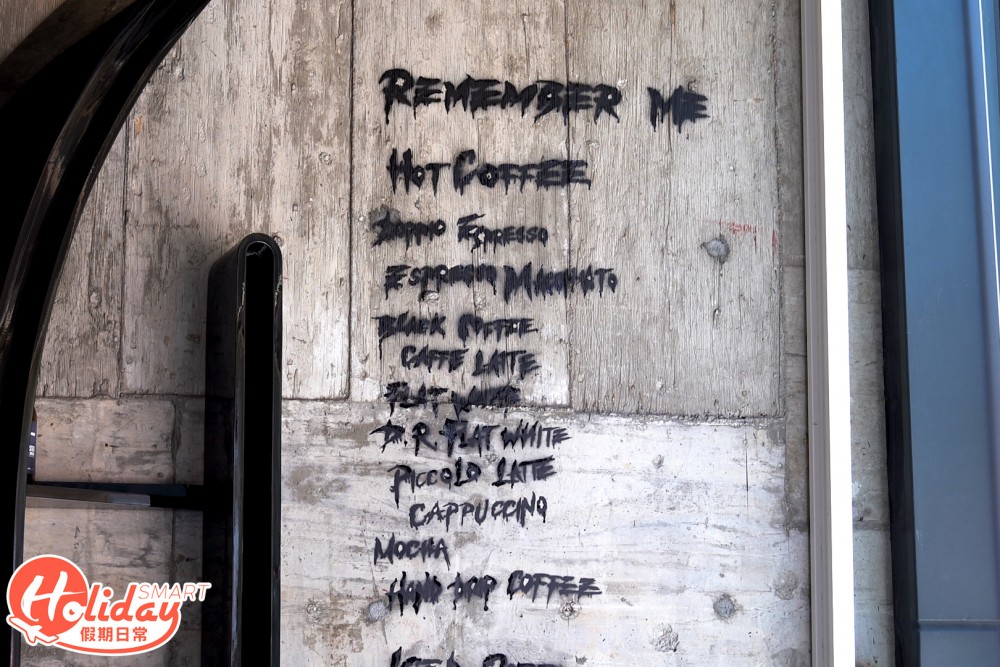 REMEMBER ME
HOT COFFEE
DOPPIO ESPRESSO
ESPRESSO MACCHIATO
BLACK COFFEE
CAFFE LATTE
FLAT WHITE
D.R. FLAT WHITE
PICCOLO LATTE
CAPPUCCINO
MOCHA
HAND DRIP COFFEE
ICED COFFEE
Holiday SMART
假期日常